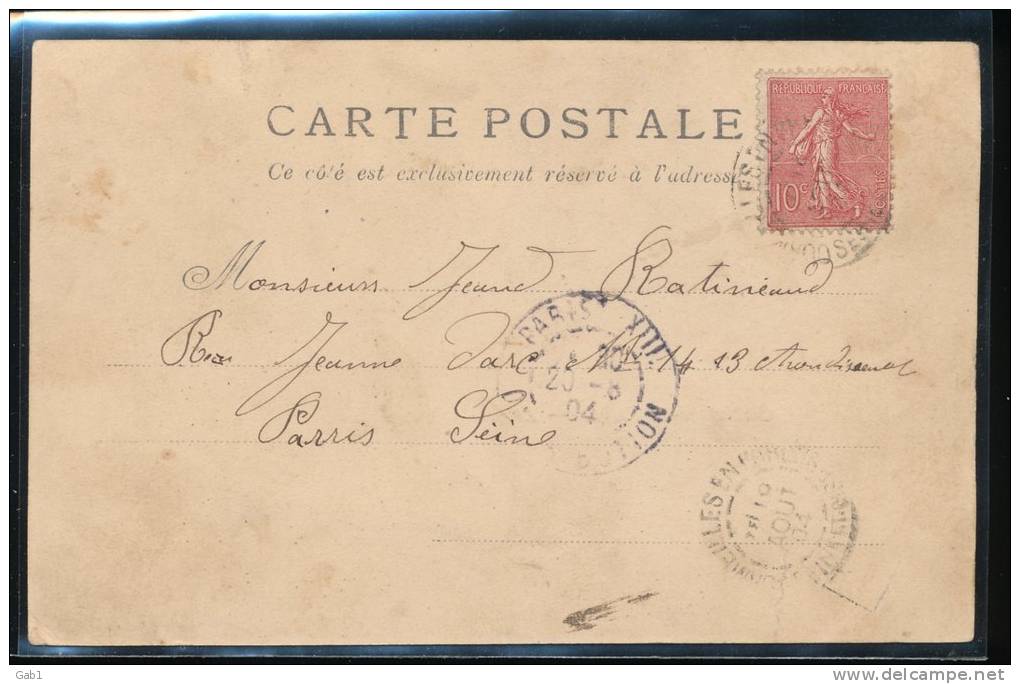 CARTE POSTALE
Ce côté est exclusivement réservé à l'adresse
REPUBLIQUE FRANÇAISE
10c
POSTES
Monsieur Jeand Ratineaud
Rue Jeanne Darc No 14 13 Arrondisement
Parris Seine
PARIS XIII
20 -8
04
BUTION
EILLES EN
19
AOUT
04
Gab1
delcampe.net